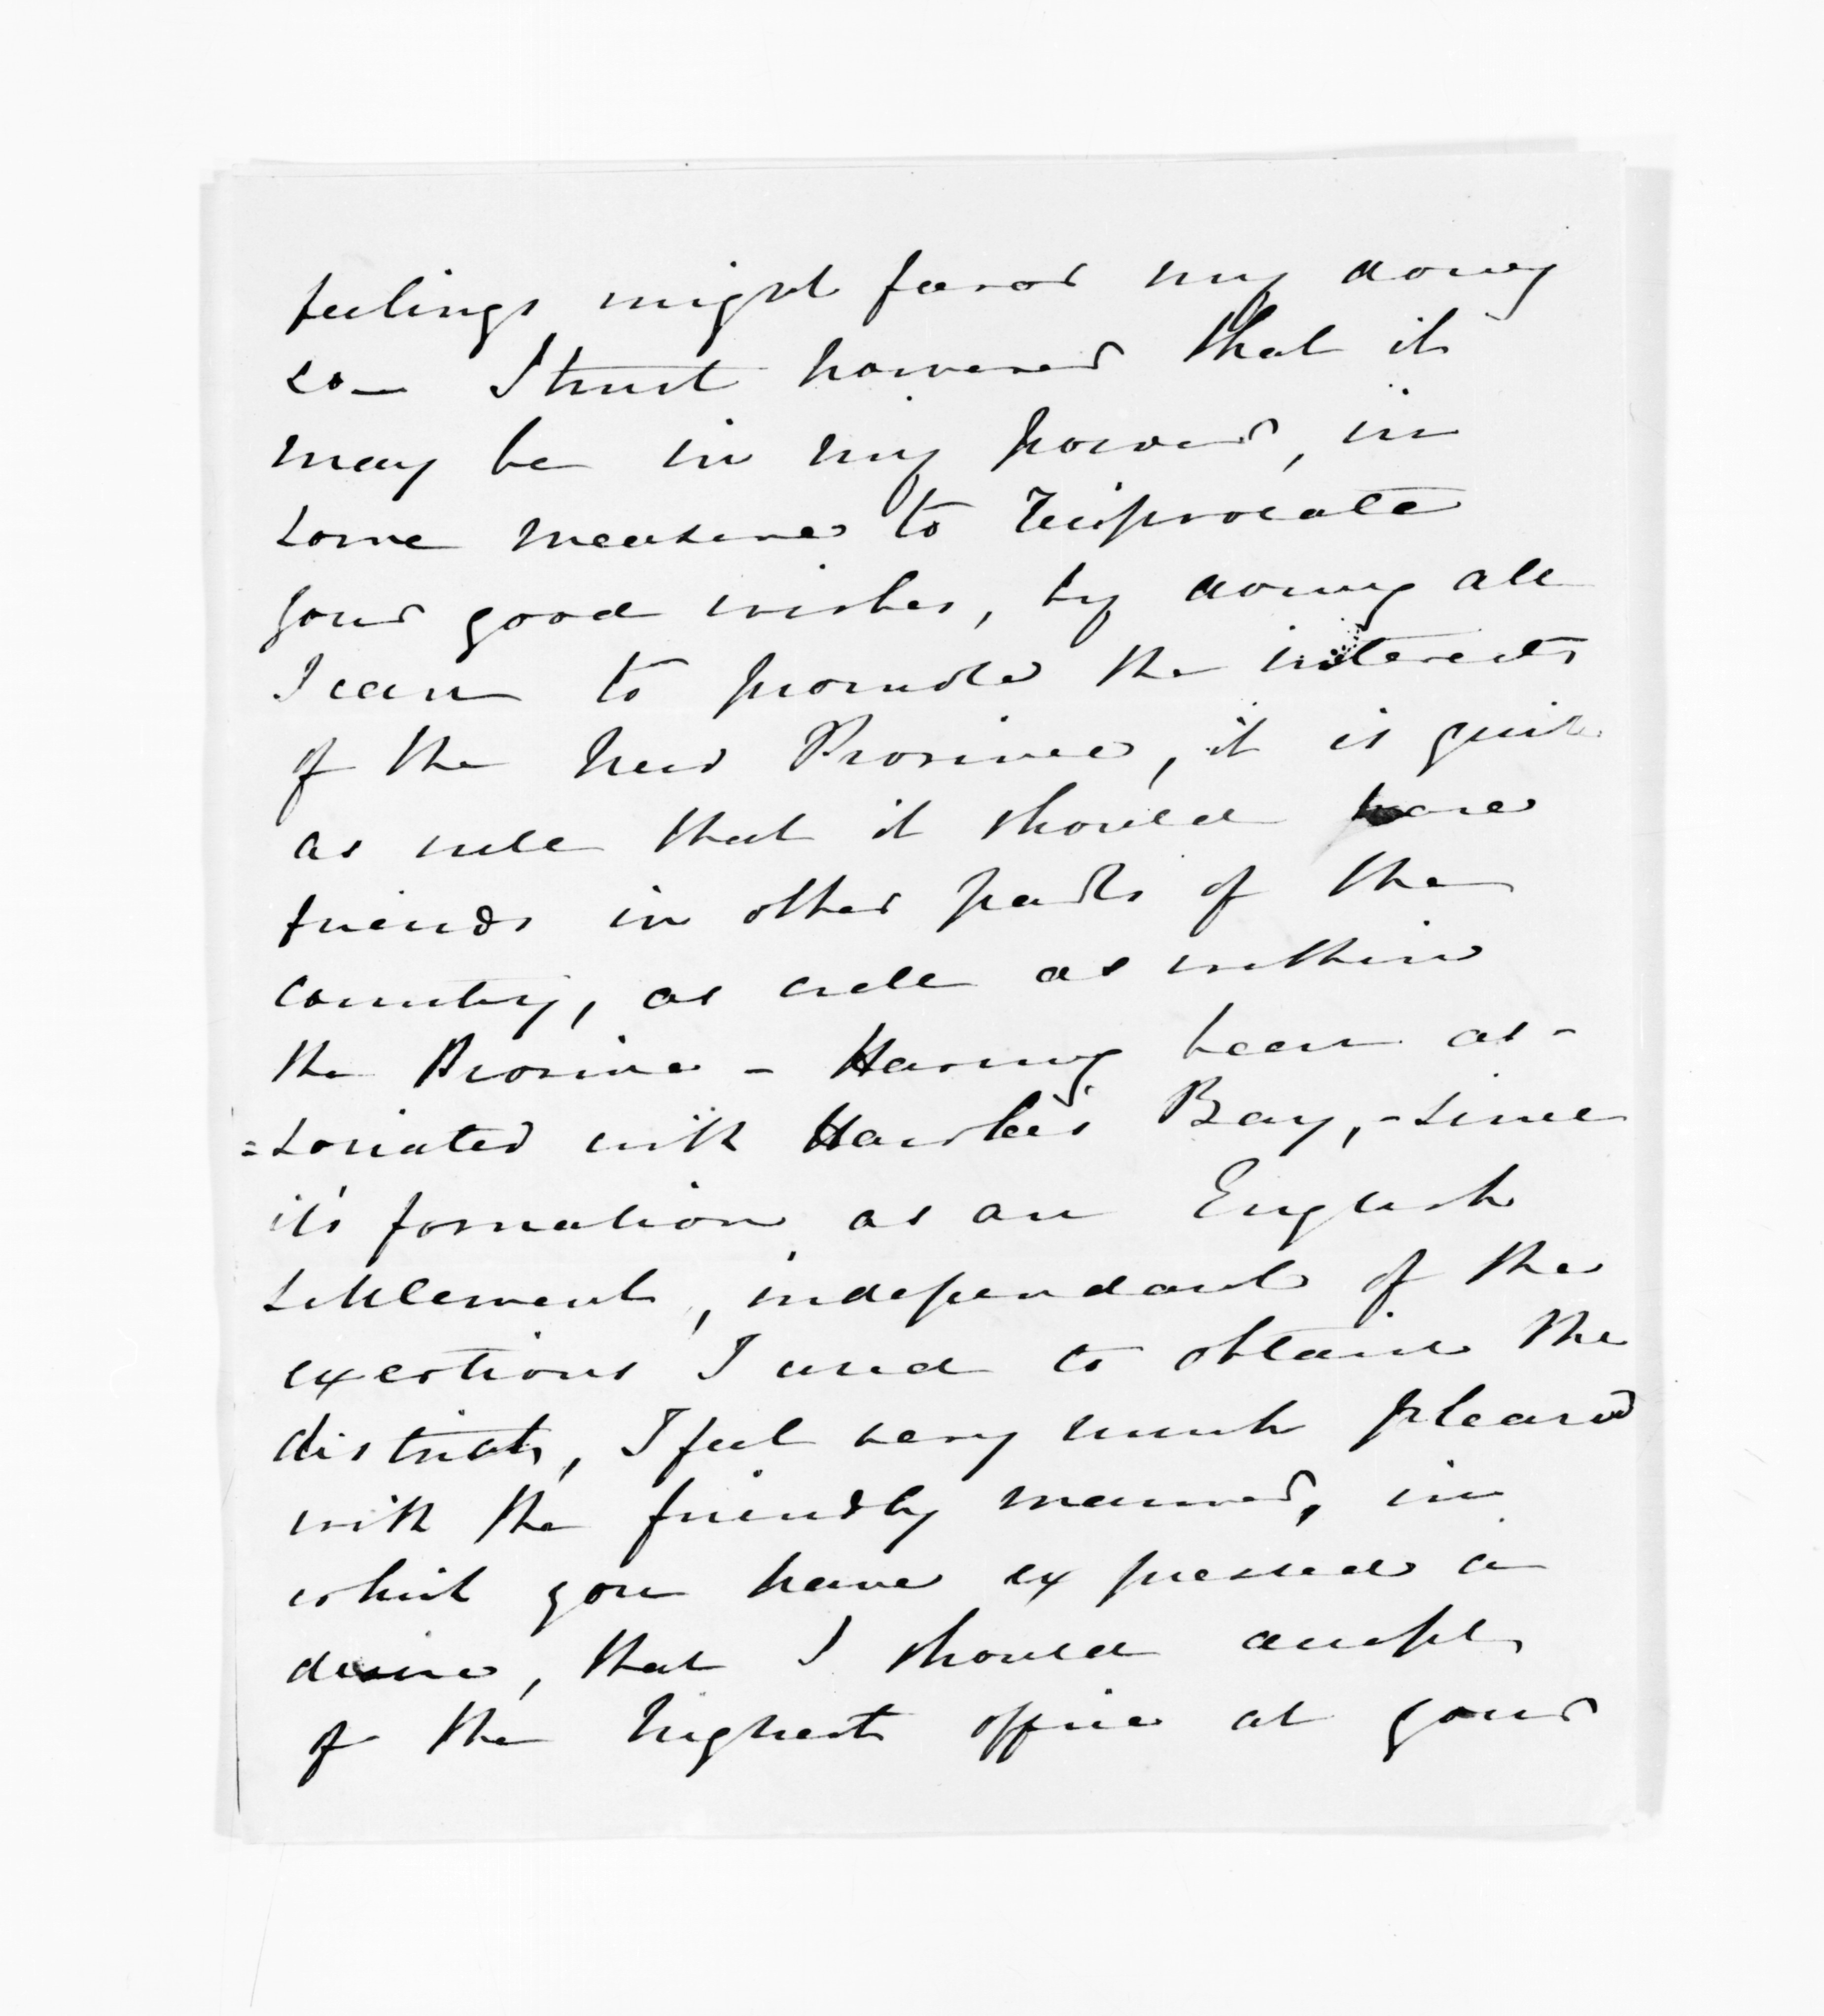 feelings might favor my doing
so_ I trust however that it
may be in my power, in
some measure to reciprocate
your good wishes, by doing all
I can to promote the interests
of the New Province, it is quite
as well that it should have
friends in other parts of the
country, as well as within
the Province - Having been as-
=sociated with Hawke's Bay, - since
it's formation as an English
settlement, independant of the
exertions I used to obtain the
districts, I feel very much pleased
with the friendly manner, in
which you have expressed a
desire, that I should accept
of the highest office at your